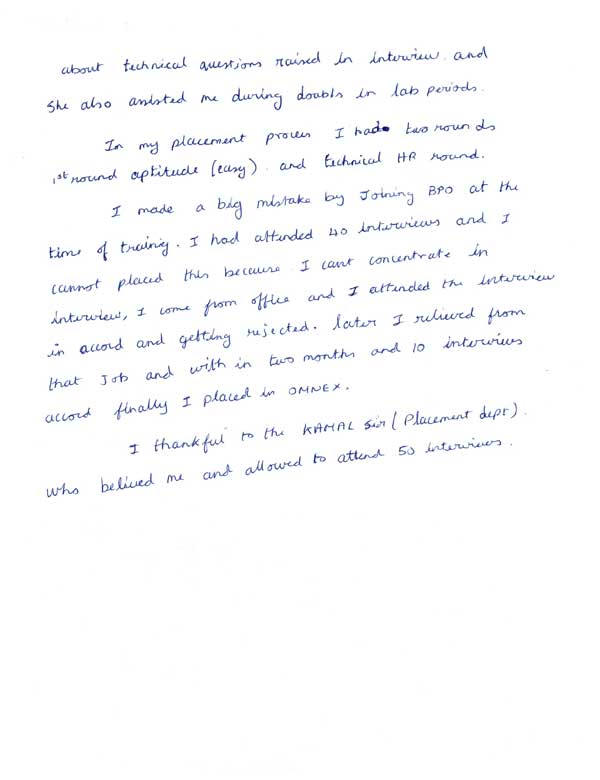 about technical questions raised in interview. and
She also assisted me during doubts in lab periods.
In my placement process I had two rounds
1st round aptitude (easy). and technical HR round.
I made a big mistake by Joining BPO at the
time of trainig. I had attended 40 interviews and I
cannot placed this because I cant concentrate in
interview, I come from office and I attended the interview
in accord and getting rejected. later I relieved from
that Job and with in two months and 10 interviews
accord finally I placed in OMNEX.
I thankful to the KAMAL sir (Placement dept).
who belived me and allowed to attend 50 interviews.